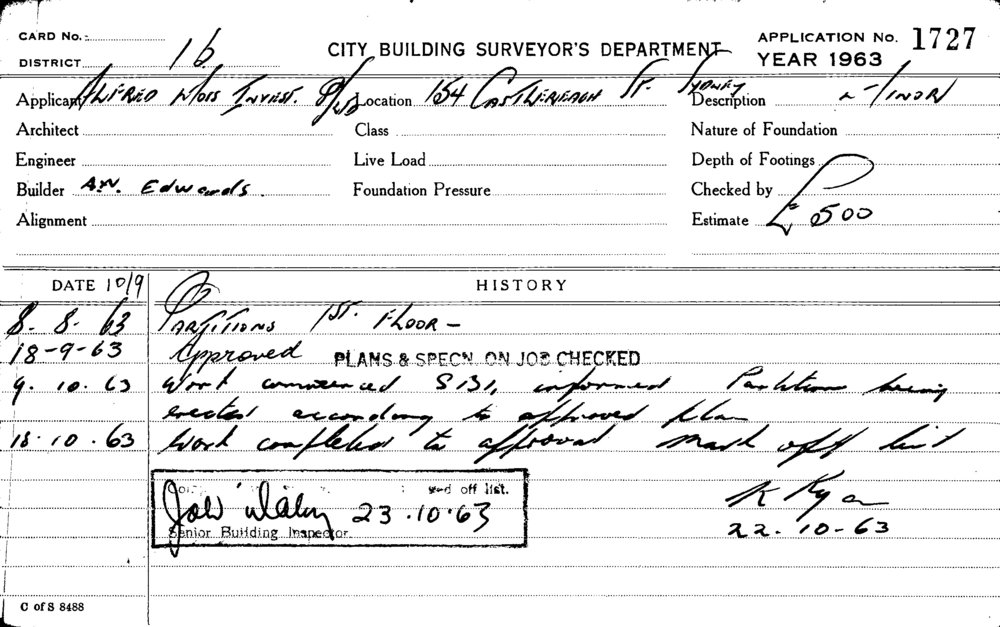 CARD No.
DISTRICT 16
CITY BUILDING SURVEYOR'S DEPARTMENT
APPLICATION No. 1727
YEAR 1963
Applicant ALFRED INVEST. P/L Location 154 CASTLEREAGH ST. SYDNEY Description MINOR
Architect Class Nature of Foundation
Engineer Live Load Depth of Footings
Builder A.W. Edwards. Foundation Pressure Checked by
Alignment Estimate £500
DATE 10/9 HISTORY
8. 8. 63 PARTITIONS 1ST. FLOOR -
18-9-63 Approved PLANS & SPECN. ON JOB CHECKED
9. 10. 63 Work commenced S131, informed Partition being
erected according to approved plan
18. 10. 63 Work completed to approval mark off list
off list.
23.10.63
Senior Building Inspector.
K Ryan
22. 10-63
C of S 8488